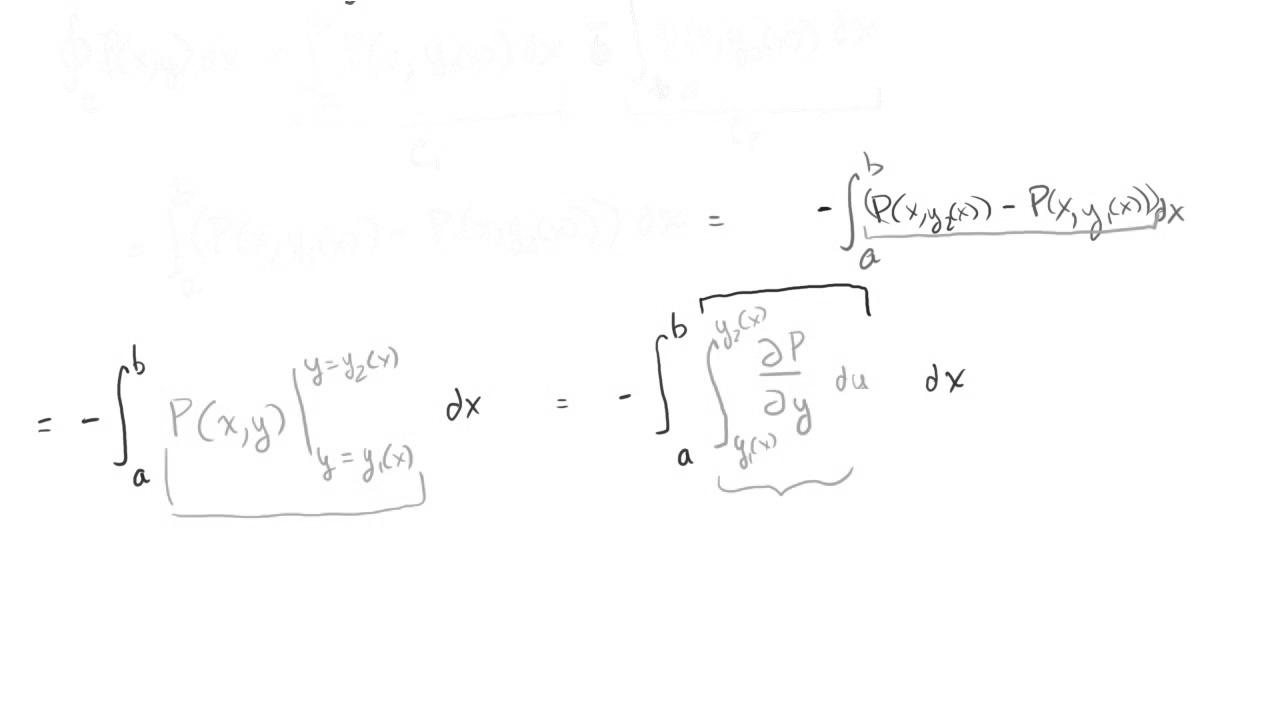 ∮_C P(x,y) dx = ∫ P(x, y₁(x)) dx ∫ P(x, y₂(x)) dx
C₁ C₂
= ∫_a^b (P(x, y₁(x)) - P(x, y₂(x))) dx = - ∫_a^b (P(x, y₂(x)) - P(x, y₁(x))) dx
= - ∫_a^b P(x,y) |_{y = y₁(x)}^{y = y₂(x)} dx = - ∫_a^b ∫_{y₁(x)}^{y₂(x)} ∂P/∂y du dx